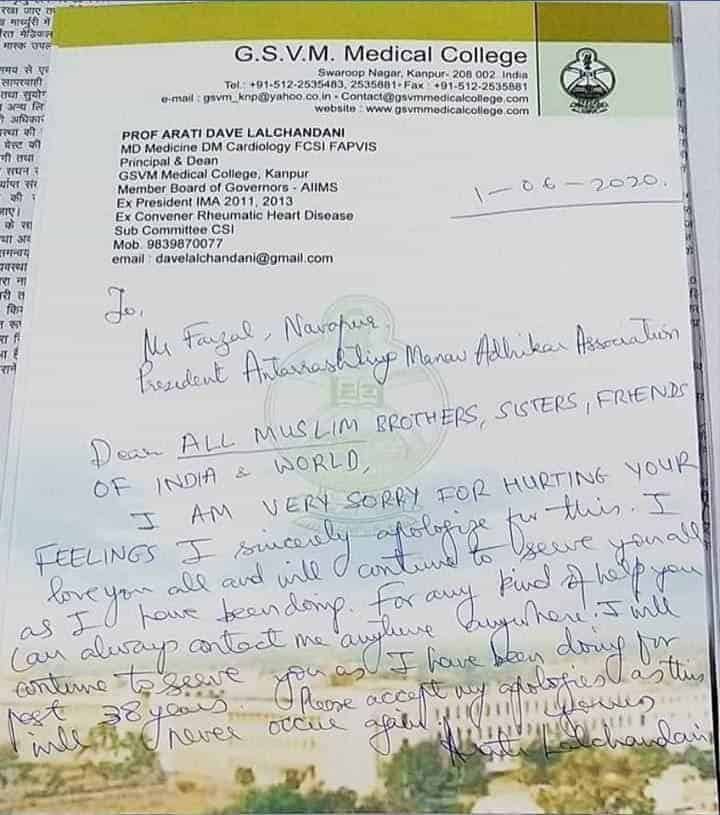 G.S.V.M. Medical College
Swaroop Nagar, Kanpur- 208 002. India
Tel.: +91-512-2535483, 2535881• Fax : +91-512-2535881
e-mail : gsvm_knp@yahoo.co.in - Contact@gsvmmedicalcollege.com
website : www.gsvmmedicalcollege.com
PROF ARATI DAVE LALCHANDANI
MD Medicine DM Cardiology FCSI FAPVIS
Principal & Dean
GSVM Medical College, Kanpur
Member Board of Governors - AIIMS
Ex President IMA 2011, 2013
Ex Convener Rheumatic Heart Disease
Sub Committee CSI
Mob. 9839870077
email : davelalchandani@gmail.com
1-06-2020.
To,
Mr Faizal, Navapur
President Antarrashtriya Manav Adhikar Association
Dear ALL MUSLIM BROTHERS, SISTERS, FRIENDS
OF INDIA & WORLD,
I AM VERY SORRY FOR HURTING YOUR
FEELINGS I sincerely apologize for this. I
love you all and will continue to serve you all
as I have been doing. For any kind of help you
can always contact me anytime anywhere. I will
continue to serve you as I have been doing for
past 38 years. Please accept my apologies as this
will never occur again
yours
Arati Lalchandani